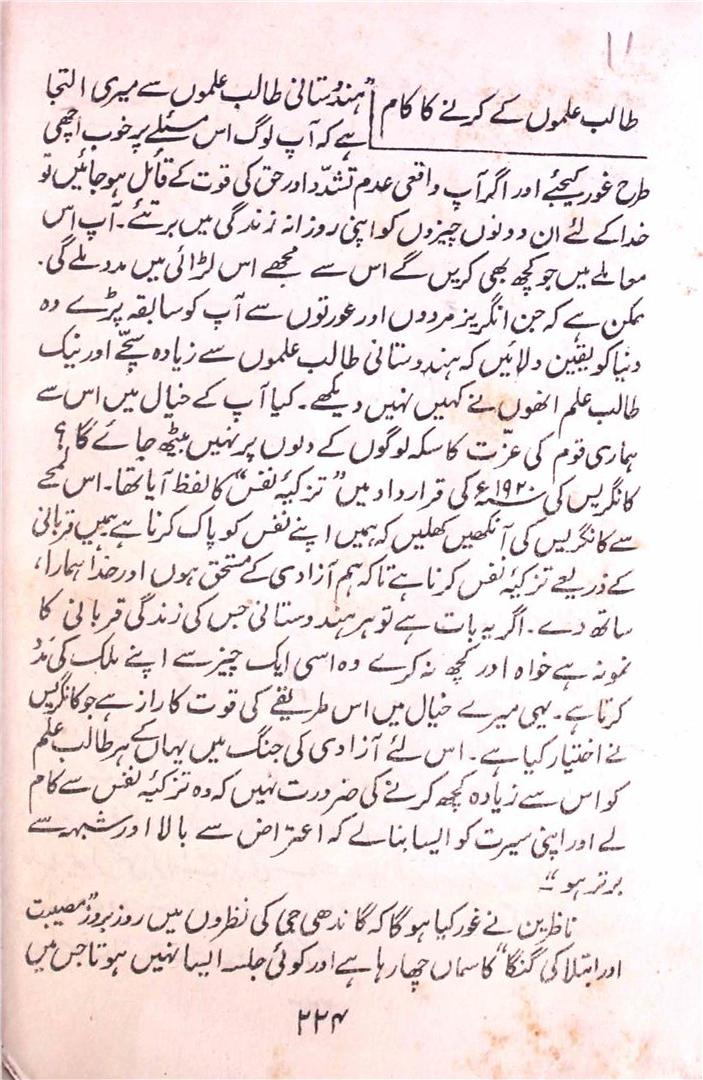 ۱۱
طالب علموں کے کرنے کا کام
"ہندوستانی طالب علموں سے میری التجا
ہے کہ آپ لوگ اس مسئلے پر خوب اچھی
طرح غور کیجئے اور اگر آپ واقعی عدم تشدّد اور حق کی قوت کے قائل ہو جائیں تو
خدا کے لئے ان دونوں چیزوں کو اپنی روزانہ زندگی میں برتئے۔ آپ اس
معاملے میں جو کچھ بھی کریں گے اس سے مجھے اس لڑائی میں مدد ملے گی۔
ممکن ہے کہ جن انگریز مردوں اور عورتوں سے آپ کو سابقہ پڑے وہ
دنیا کو یقین دلائیں کہ ہندوستانی طالب علموں سے زیادہ سچّے اور نیک
طالب علم انھوں نے کہیں نہیں دیکھے۔ کیا آپ کے خیال میں اس سے
ہماری قوم کی عزّت کا سکہ لوگوں کے دلوں پر نہیں بیٹھ جائے گا؟
کانگریس کی ۱۹۲۰ء کی قرارداد میں "تزکیۂ نفس" کا لفظ آیا تھا۔ اس لمحے
سے کانگریس کی آنکھیں کھلیں کہ ہمیں اپنے نفس کو پاک کرنا ہے ہمیں قربانی
کے ذریعے تزکیۂ نفس کرنا ہے تاکہ ہم آزادی کے مستحق ہوں اور خدا ہمارا،
ساتھ دے۔ اگر یہ بات ہے تو ہر ہندوستانی جس کی زندگی قربانی کا
نمونہ ہے خواہ اور کچھ نہ کرے وہ اسی ایک چیز سے اپنے ملک کی مدد
کرتا ہے۔ یہی میرے خیال میں اس طریقے کی قوت کا راز ہے جو کانگریس
نے اختیار کیا ہے۔ اس لئے آزادی کی جنگ میں یہاں کے ہر طالب علم
کو اس سے زیادہ کچھ کرنے کی ضرورت نہیں کہ وہ تزکیۂ نفس سے کام
لے اور اپنی سیرت کو ایسا بنالے کہ اعتراض سے بالا اور شبہہ سے
برتر ہو"۔
ناظرین نے غور کیا ہوگا کہ گاندھی جی کی نظروں میں روز بروز "مصیبت
اور ابتلا کی گنگا" کا سماں چھا رہا ہے اور کوئی جلسہ ایسا نہیں ہوتا جس میں
۲۲۴